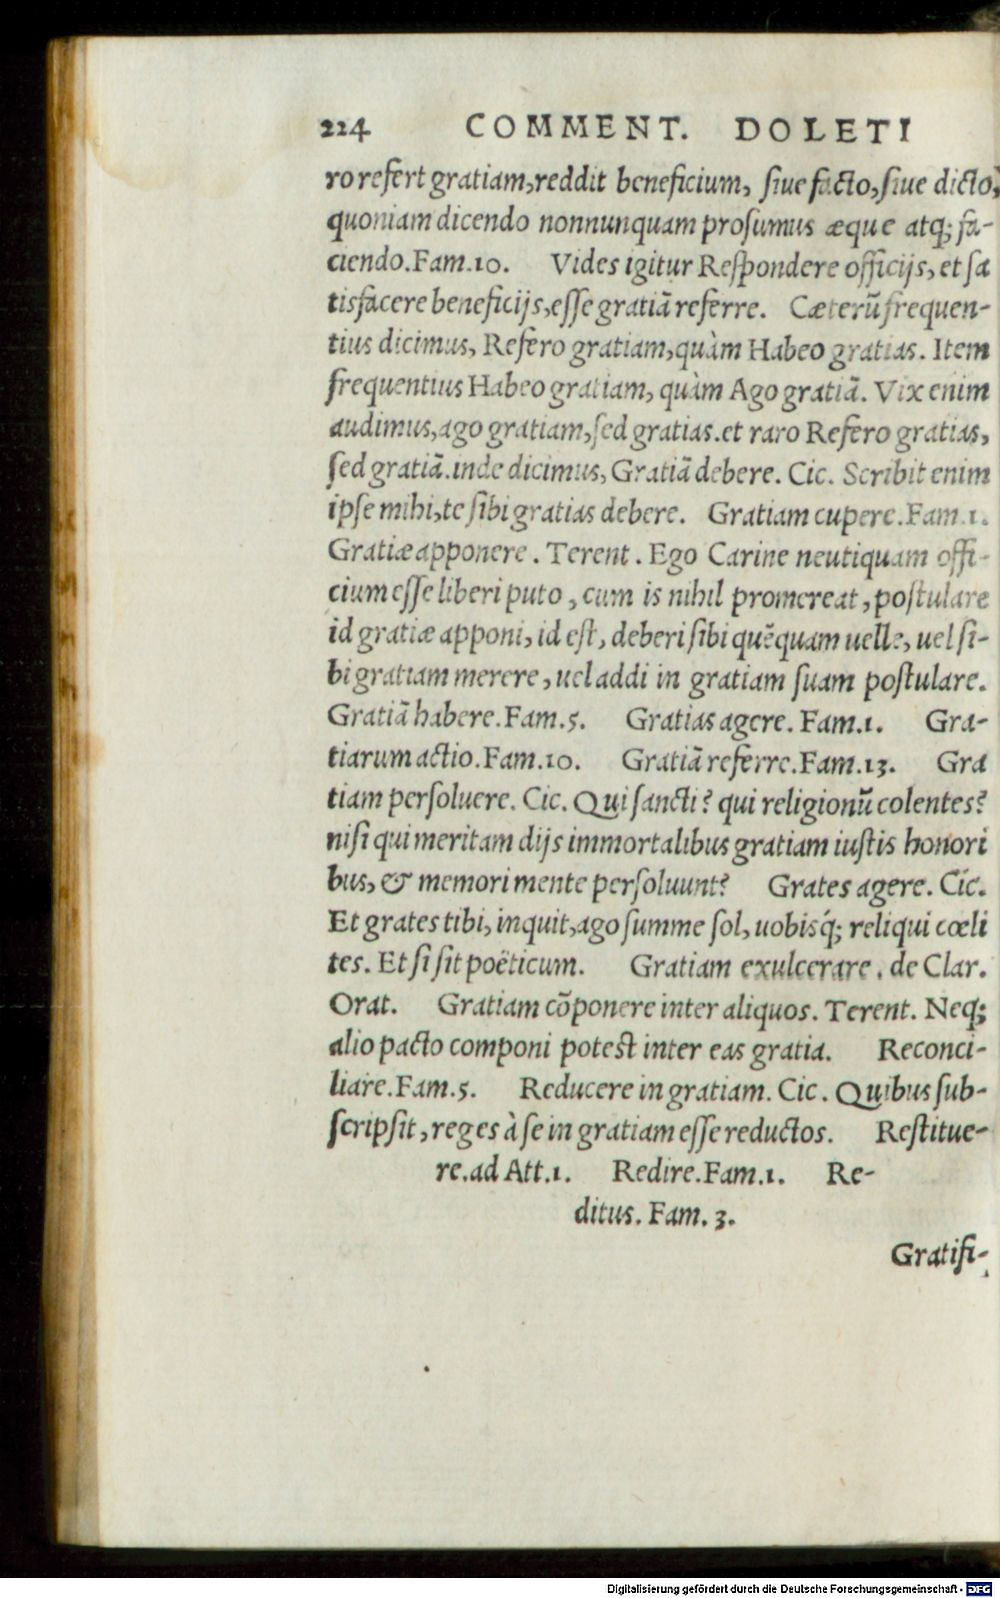 224 COMMENT. DOLETI
ro refert gratiam, reddit beneficium, siue facto, siue dicto,
quoniam dicendo nonnunquam prosumus æque atq; fa-
ciendo. Fam. 10. Vides igitur Respondere officijs, et sa
tisfacere beneficijs, esse gratiã referre. Cæterũ frequen-
tius dicimus, Refero gratiam, quàm Habeo gratias. Item
frequentius Habeo gratiam, quàm Ago gratiã. Vix enim
audimus, ago gratiam, sed gratias. et raro Refero gratias,
sed gratiã. inde dicimus, Gratiã debere. Cic. Scribit enim
ipse mihi, te sibi gratias debere. Gratiam cupere. Fam. 1.
Gratiæ apponere. Terent. Ego Carine neutiquam offi-
cium esse liberi puto, cum is nihil promereat, postulare
id gratiæ apponi, id est, deberi sibi quẽquam uelle, uel si-
bi gratiam merere, uel addi in gratiam suam postulare.
Gratiã habere. Fam. 5. Gratias agere. Fam. 1. Gra-
tiarum actio. Fam. 10. Gratiã referre. Fam. 13. Gra
tiam persoluere. Cic. Qui sancti? qui religionũ colentes?
nisi qui meritam dijs immortalibus gratiam iustis honori
bus, & memori mente persoluunt? Grates agere. Cic.
Et grates tibi, inquit, ago summe sol, uobisq́; reliqui cœli
tes. Et si sit poëticum. Gratiam exulcerare. de Clar.
Orat. Gratiam cõponere inter aliquos. Terent. Neq;
alio pacto componi potest inter eas gratia. Reconci-
liare. Fam. 5. Reducere in gratiam. Cic. Quibus sub-
scripsit, reges à se in gratiam esse reductos. Restitue-
re. ad Att. 1. Redire. Fam. 1. Re-
ditus. Fam. 3.
Gratifi-
Digitalisierung gefördert durch die Deutsche Forschungsgemeinschaft - DFG